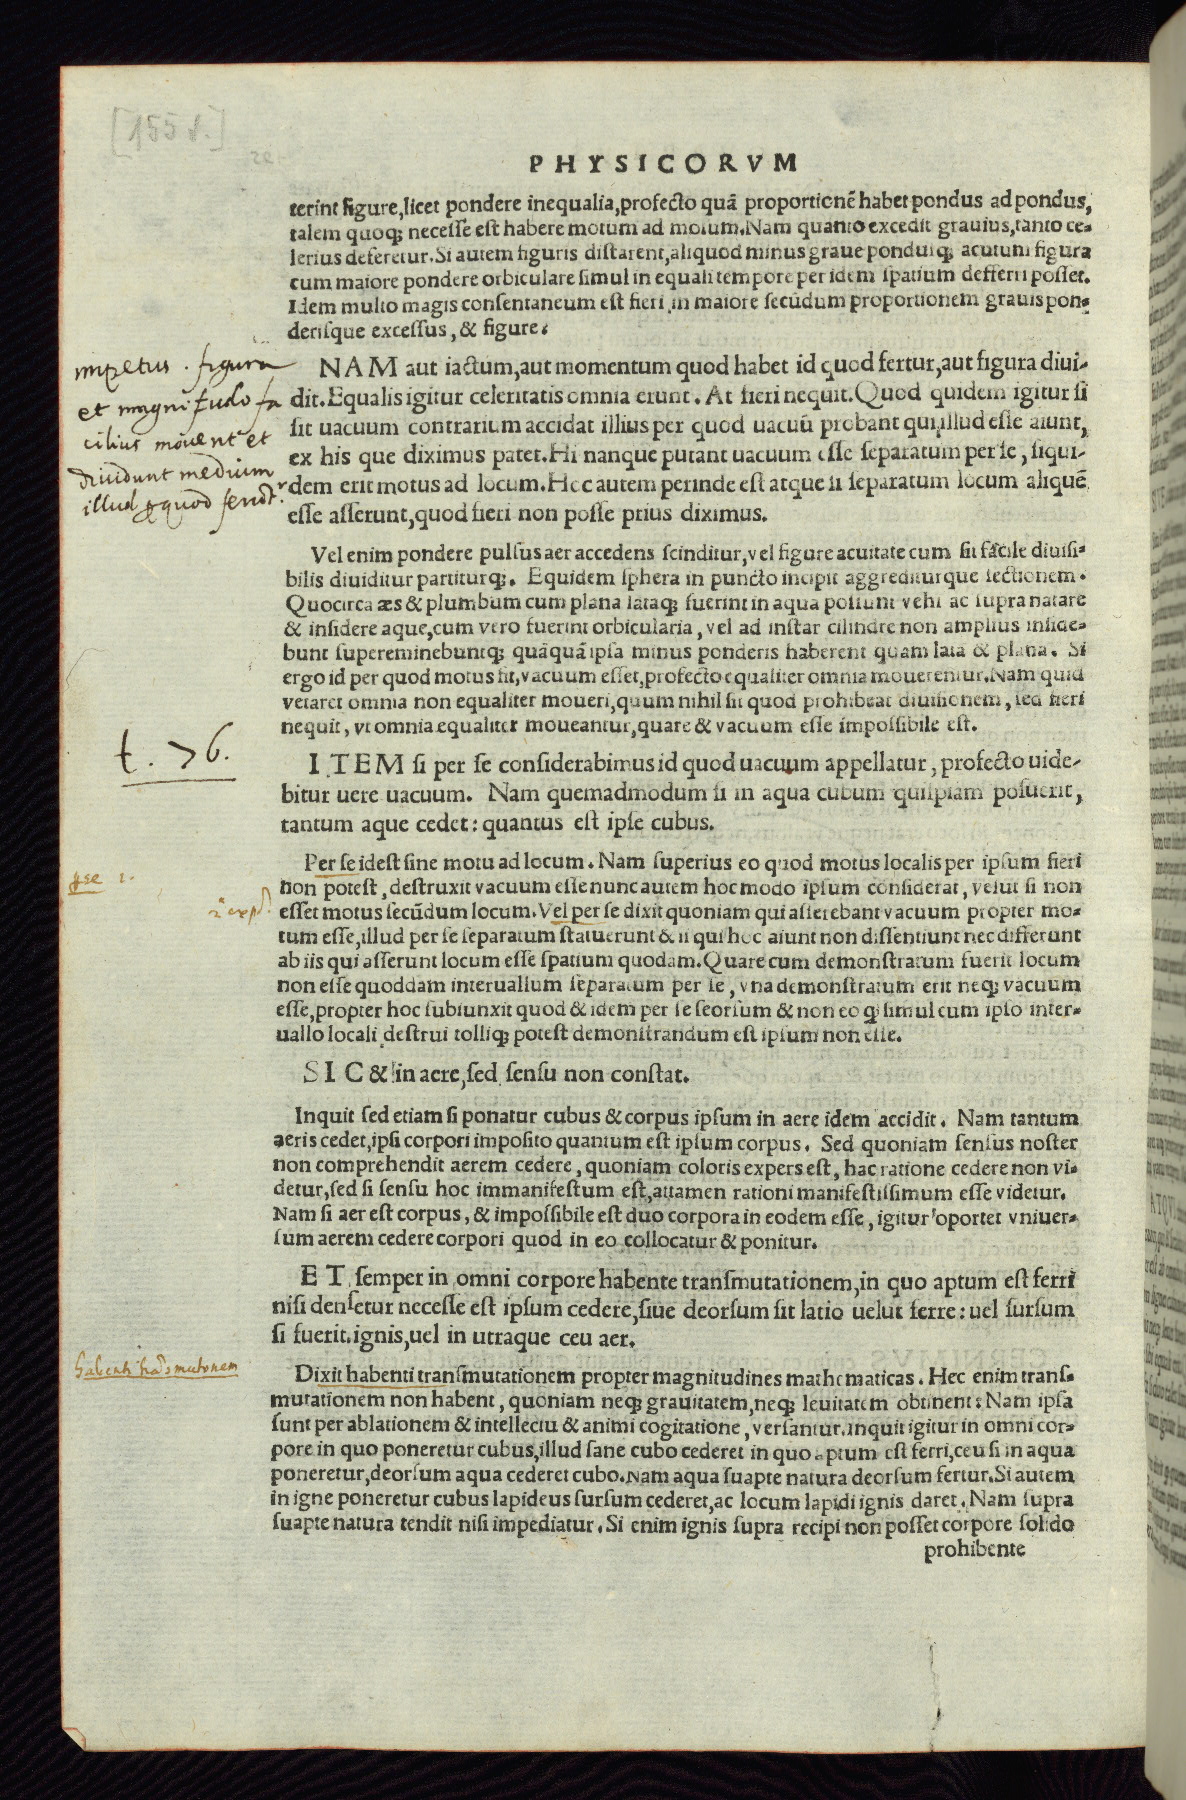 [155 v.]
PHYSICORVM
terint figure,licet pondere inequalia,profecto quā proportionē habet pondus ad pondus,
talem quoq; necesse est habere motum ad motum.Nam quanto excedit grauius,tanto ce-
lerius deferetur.Si autem figuris distarent,aliquod minus graue ponduiq; acutum figura
cum maiore pondere orbiculare simul in equali tempore per idem spatium defferri posset.
Idem multo magis consentaneum est fieri in maiore secūdum proportionem grauis pon-
derisque excessus, & figure.
impetus . figura
et magnitudo fa
cilius movent et
dividunt medium
illud quod
NAM aut iactum,aut momentum quod habet id quod fertur,aut figura diui-
dit.Equalis igitur celeritatis omnia erunt. At fieri nequit.Quod quidem igitur si
sit uacuum contrarium accidat illius per quod uacuū probant qui illud esse aiunt,
ex his que diximus patet.Hi nanque putant uacuum esse separatum per se, siqui-
dem erit motus ad locum.Hec autem perinde est atque si separatum locum aliquē
esse asserunt,quod fieri non posse prius diximus.
Vel enim pondere pulsus aer accedens scinditur,vel figure acuitate cum sit facile diuisi-
bilis diuiditur partiturq;. Equidem sphera in puncto incipit aggrediturque sectionem.
Quocirca æs & plumbum cum plana lataq; fuerint in aqua possunt vehi ac supra natare
& insidere aque,cum vero fuerint orbicularia, vel ad instar cilindre non amplius inside-
bunt supereminebuntq; quāquā ipsa minus ponderis haberent quam lata & plana. Si
ergo id per quod motus fit,vacuum esset,profecto equaliter omnia mouerentur.Nam quid
vetaret omnia non equaliter moueri,quum nihil sit quod prohibeat diuisionem, sed fieri
nequit, vt omnia equaliter moueantur,quare & vacuum esse impossibile est.
t. 76.
ITEM si per se considerabimus id quod uacuum appellatur, profecto uide-
bitur uere uacuum. Nam quemadmodum si in aqua cubum quispiam posuerit,
tantum aque cedet: quantus est ipse cubus.
Per se idest sine motu ad locum. Nam superius eo quod motus localis per ipsum fieri
non potest, destruxit vacuum esse nunc autem hoc modo ipsum considerat, velut si non
esset motus secūdum locum.Vel per se dixit quoniam qui asserebant vacuum propter mo-
tum esse,illud per se separatum statuerunt & ii qui hoc aiunt non dissentiunt nec differunt
ab iis qui asserunt locum esse spatium quodam.Quare cum demonstratum fuerit locum
non esse quoddam interuallum separatum per se, vna demonstratum erit neq; vacuum
esse,propter hoc subiunxit quod & idem per se seorsum & non eo q simul cum ipso inter-
uallo locali destrui tolliq; potest demonstrandum est ipsum non esse.
SIC & in aere,sed sensu non constat.
Inquit sed etiam si ponatur cubus & corpus ipsum in aere idem accidit. Nam tantum
aeris cedet,ipsi corpori imposito quantum est ipsum corpus. Sed quoniam sensus noster
non comprehendit aerem cedere, quoniam coloris expers est, hac ratione cedere non vi-
detur,sed si sensu hoc immanifestum est,attamen rationi manifestissimum esse videtur.
Nam si aer est corpus, & impossibile est duo corpora in eodem esse, igitur oportet vniuer-
sum aerem cedere corpori quod in eo collocatur & ponitur.
ET semper in omni corpore habente transmutationem,in quo aptum est ferri
nisi densetur necesse est ipsum cedere,siue deorsum sit latio uelut terre: uel sursum
si fuerit ignis,uel in utraque ceu aer.
habenti transmutationem
Dixit habenti transmutationem propter magnitudines mathematicas. Hec enim trans-
mutationem non habent, quoniam neq; grauitatem,neq; leuitatem obtinent: Nam ipsa
sunt per ablationem & intellectu & animi cogitatione, versantur.inquit igitur in omni cor-
pore in quo poneretur cubus,illud sane cubo cederet in quo aptum est ferri,ceu si in aqua
poneretur,deorsum aqua cederet cubo.Nam aqua suapte natura deorsum fertur.Si autem
in igne poneretur cubus lapideus sursum cederet,ac locum lapidi ignis daret. Nam supra
suapte natura tendit nisi impediatur. Si enim ignis supra recipi non posset corpore solido
prohibente